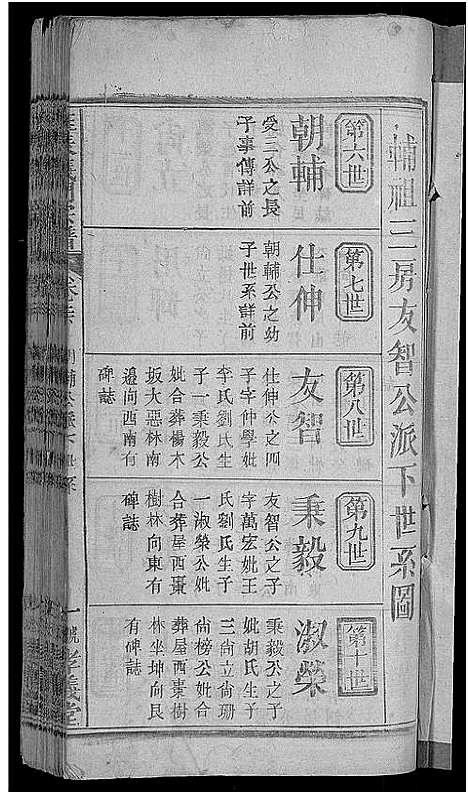 輔祖三房友智公派下世系圖
第六世
朝輔
受三公之長
子事傳詳前
第七世
仕伸
朝輔公之幼
子世系詳前
第八世
友智
仕伸公之四
子字仲學妣
李氏劉氏生
子一秉毅公
妣合葬楊木
坂大惡林南
邉向西南有
碑誌
第九世
秉毅
友智公之子
字萬宏妣王
氏劉氏生子
一淑榮公妣
合葬屋西棗
樹林向東有
碑誌
第十世
淑榮
秉毅公之子
妣胡氏生子
三尙立尙珊
尙榜公妣合
葬屋西棗樹
林坐坤向艮
有碑誌
朝輔公派下世系
一
孝義堂